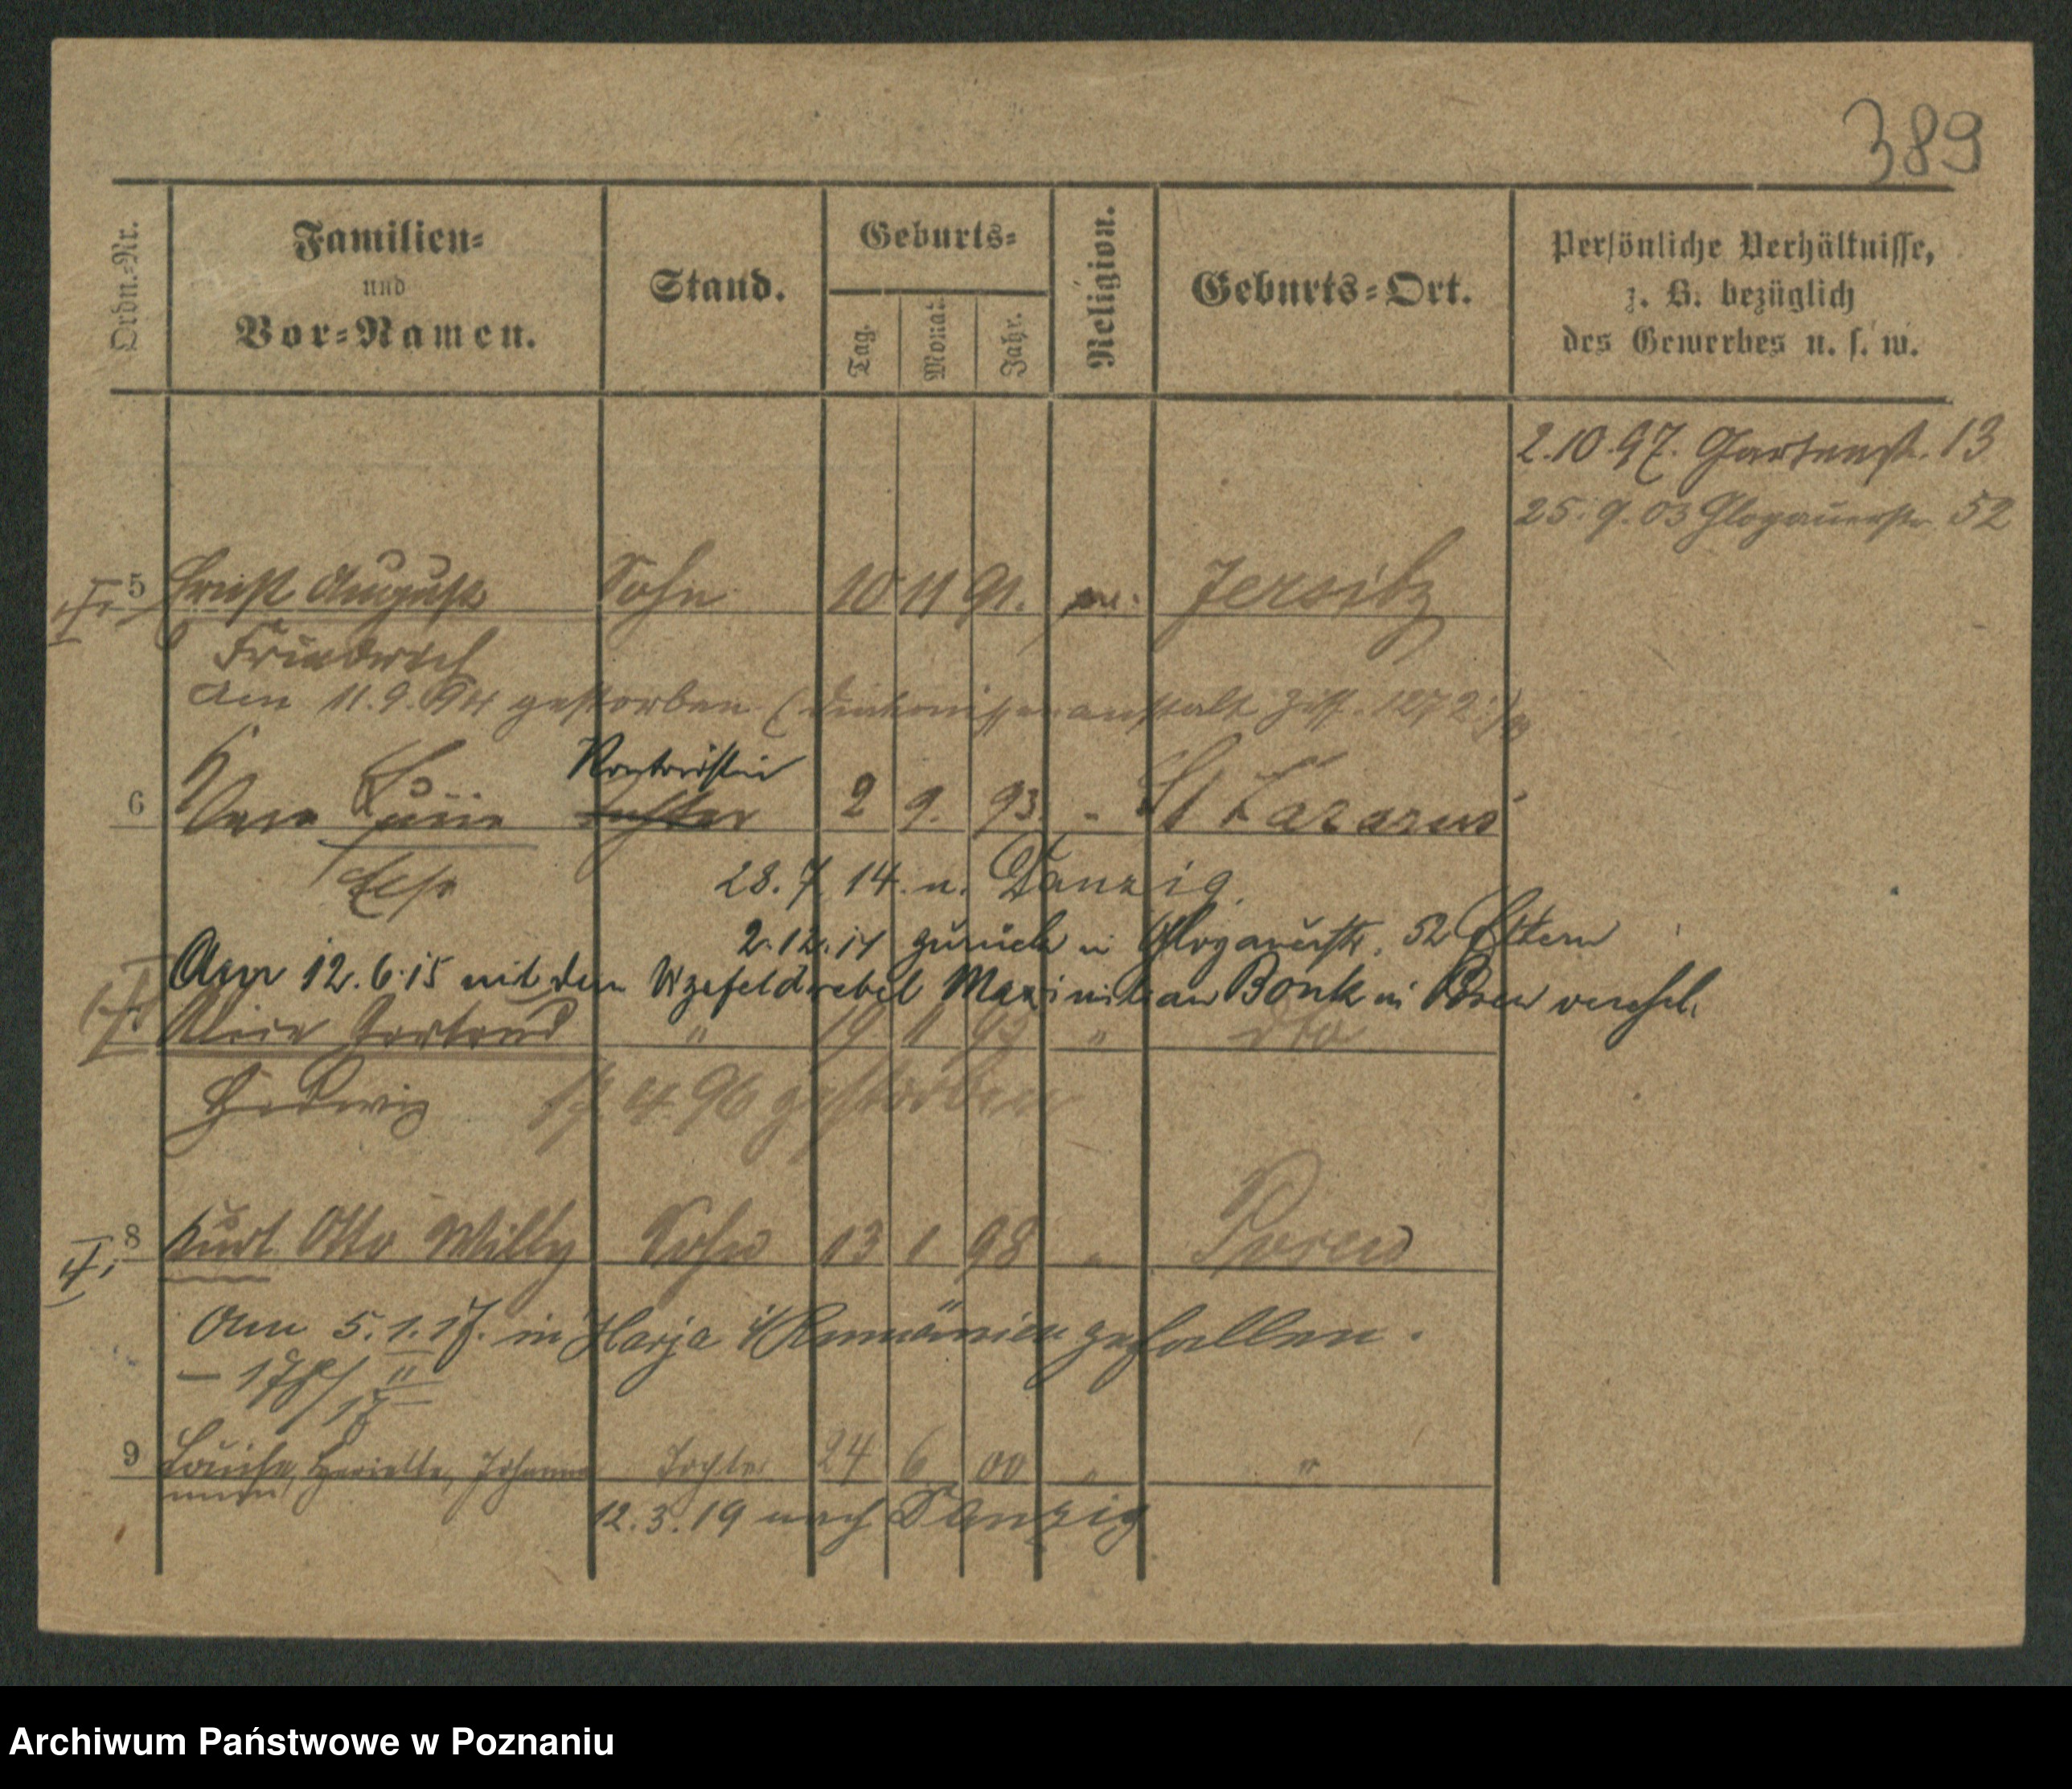 389
Ordn.-Nr.
Familien-
und
Vor-Namen.
Stand.
Geburts-
Tag.
Monat
Jahr.
Religion.
Geburts-Ort.
Persönliche Verhältnisse,
z. B. bezüglich
des Gewerbes u. s. w.
2.10.97. Gartenstr. 13
25.9.03 Glogauerstr. 52
5 Ernst August Sohn 10 11 91. Jersitz
Friedrich
Am 11.9. gestorben (Diakonissenanstalt 1272)
Kontoristin
6 Luise Tochter 2 9. 93. " St Lazarus
Else
28.7.14. n. Danzig.
2.12.14 zurück n Glogauerstr. 52 Eltern
Am 12.6.15 mit dem Vizefeldwebel Maximilian Bonk in Posen verehel.
Alice Gertrud " 19 1 95 " dto
Hedwig 17.4.96 gestorben
8 Kurt Otto Willy Sohn 13 1 98 " Posen
Am 5.1.17. in Harja i/Rumänien gefallen.
9 Louise, Henriette, Johanna Tochter 24 6 00 " "
12.3.19 nach Danzig
Archiwum Państwowe w Poznaniu